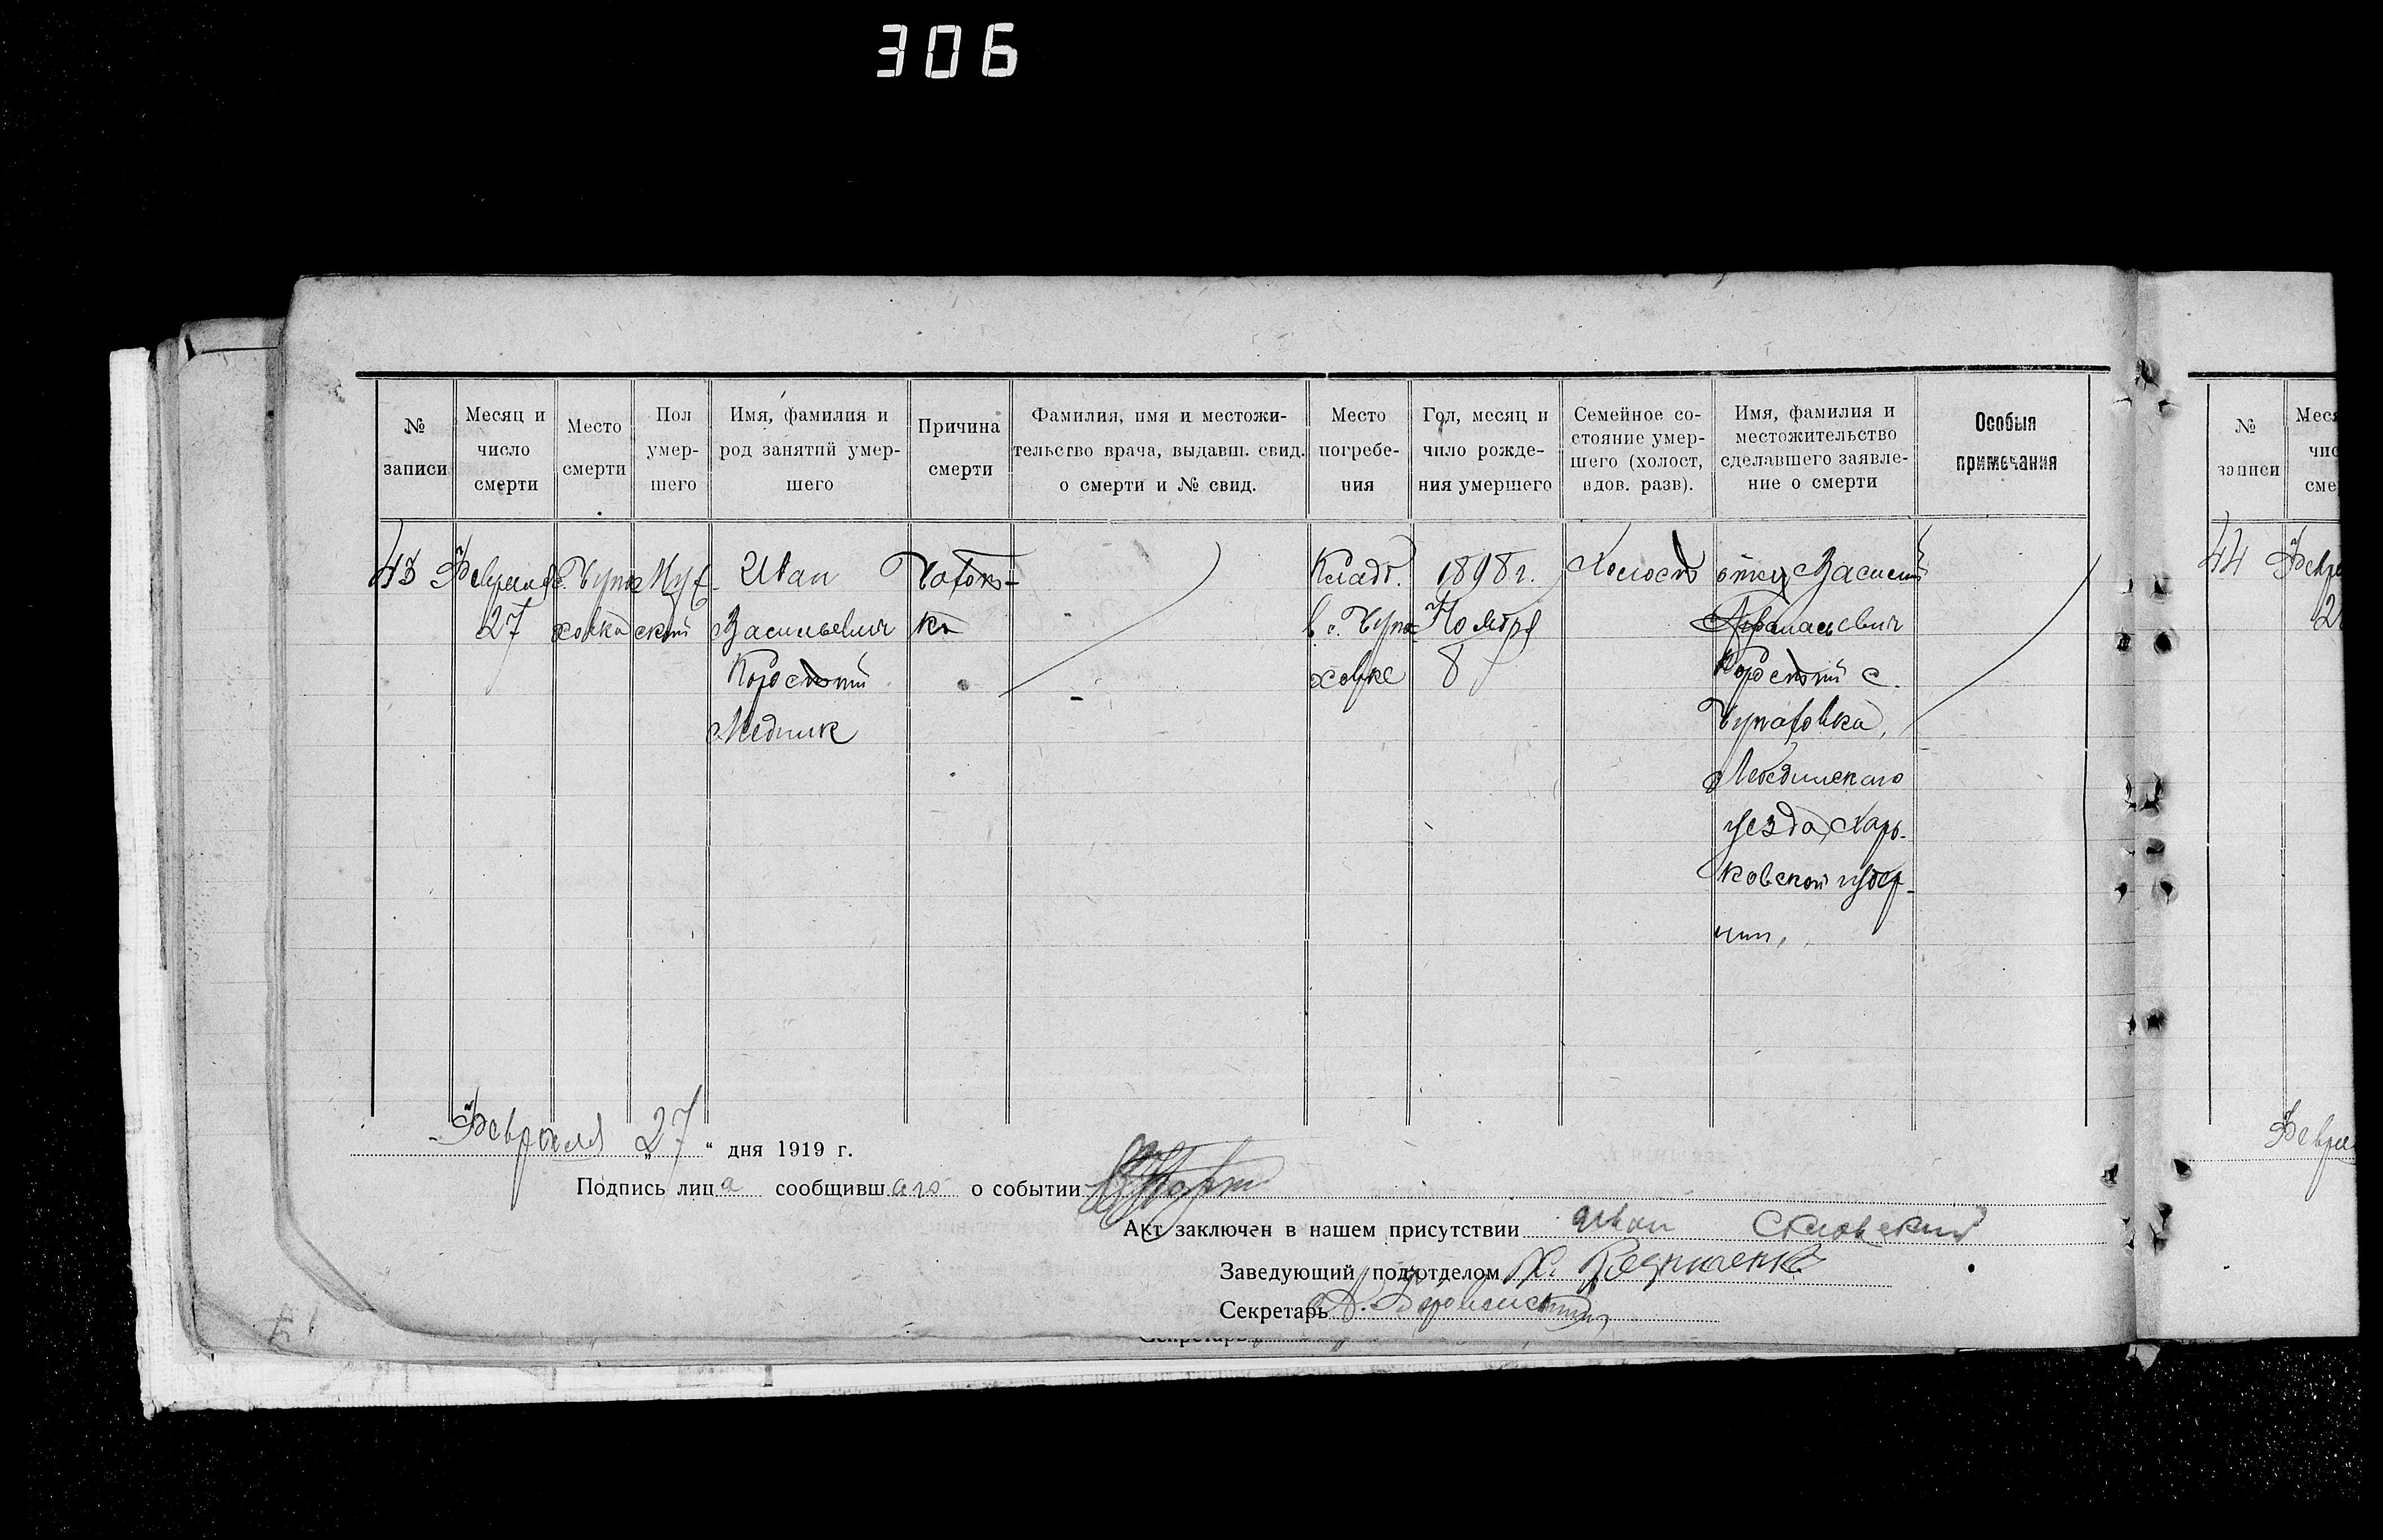 306
№ записи
Месяц и число смерти
Место смерти
Пол умершего
Имя, фамилия и род занятий умершего
Причина смерти
Фамилия, имя и местожительство врача, выдавш. свид. о смерти и № свид.
Место погребения
Год, месяц и чило рождения умершего
Семейное состояние умершего (холост, вдов. разв).
Имя, фамилия и местожительство сделавшего заявление о смерти
Особыя примечания
№ записи
43
Февраля
27
с. Чупа
ховка
Муж
ский
Иван
Васильевич
Медник
Чахот-
ка
Кладб.
в с. Чупа
ховке
1898 г.
Ноября
8
Холост
отец Василий
Афанасьевич
с.
Чупаховка,
Лебединскаго
уезда, Харь-
ковской губер-
нии,
44
Февраля 27 “ дня 1919 г.
Подпись лица сообщившаго о событии
Акт заключен в нашем присутствии Иван
Заведующий подотделом
Секретарь